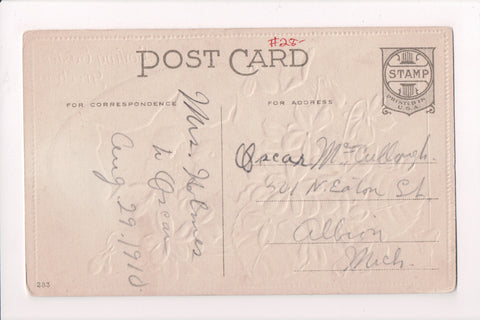 #28-
POST CARD
FOR CORRESPONDENCE
FOR ADDRESS
STAMP
PRINTED IN
U.S.A.
Mrs. Holmes
to Oscar
Aug. 29. 1910.
Oscar McCullough.
501 N. Eaton St.
Albion
Mich.
283